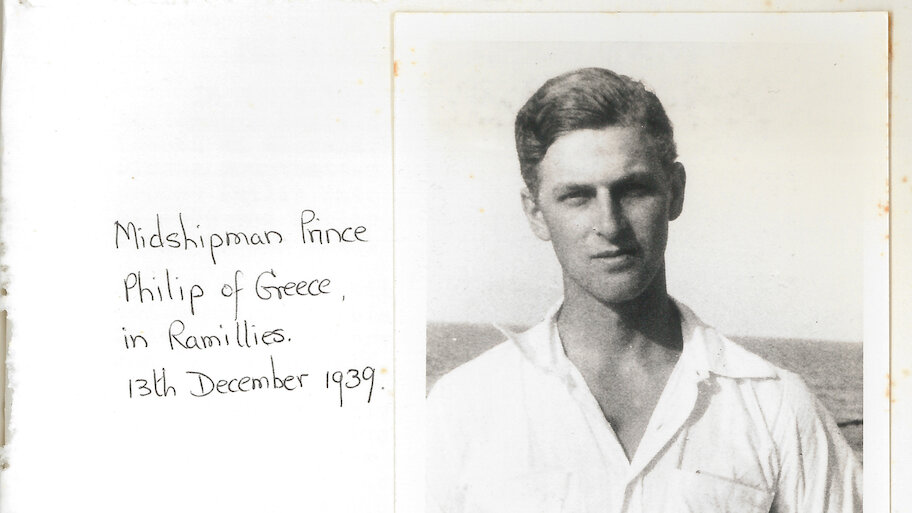 Midshipman Prince
Philip of Greece,
in Ramillies.
13th December 1939.